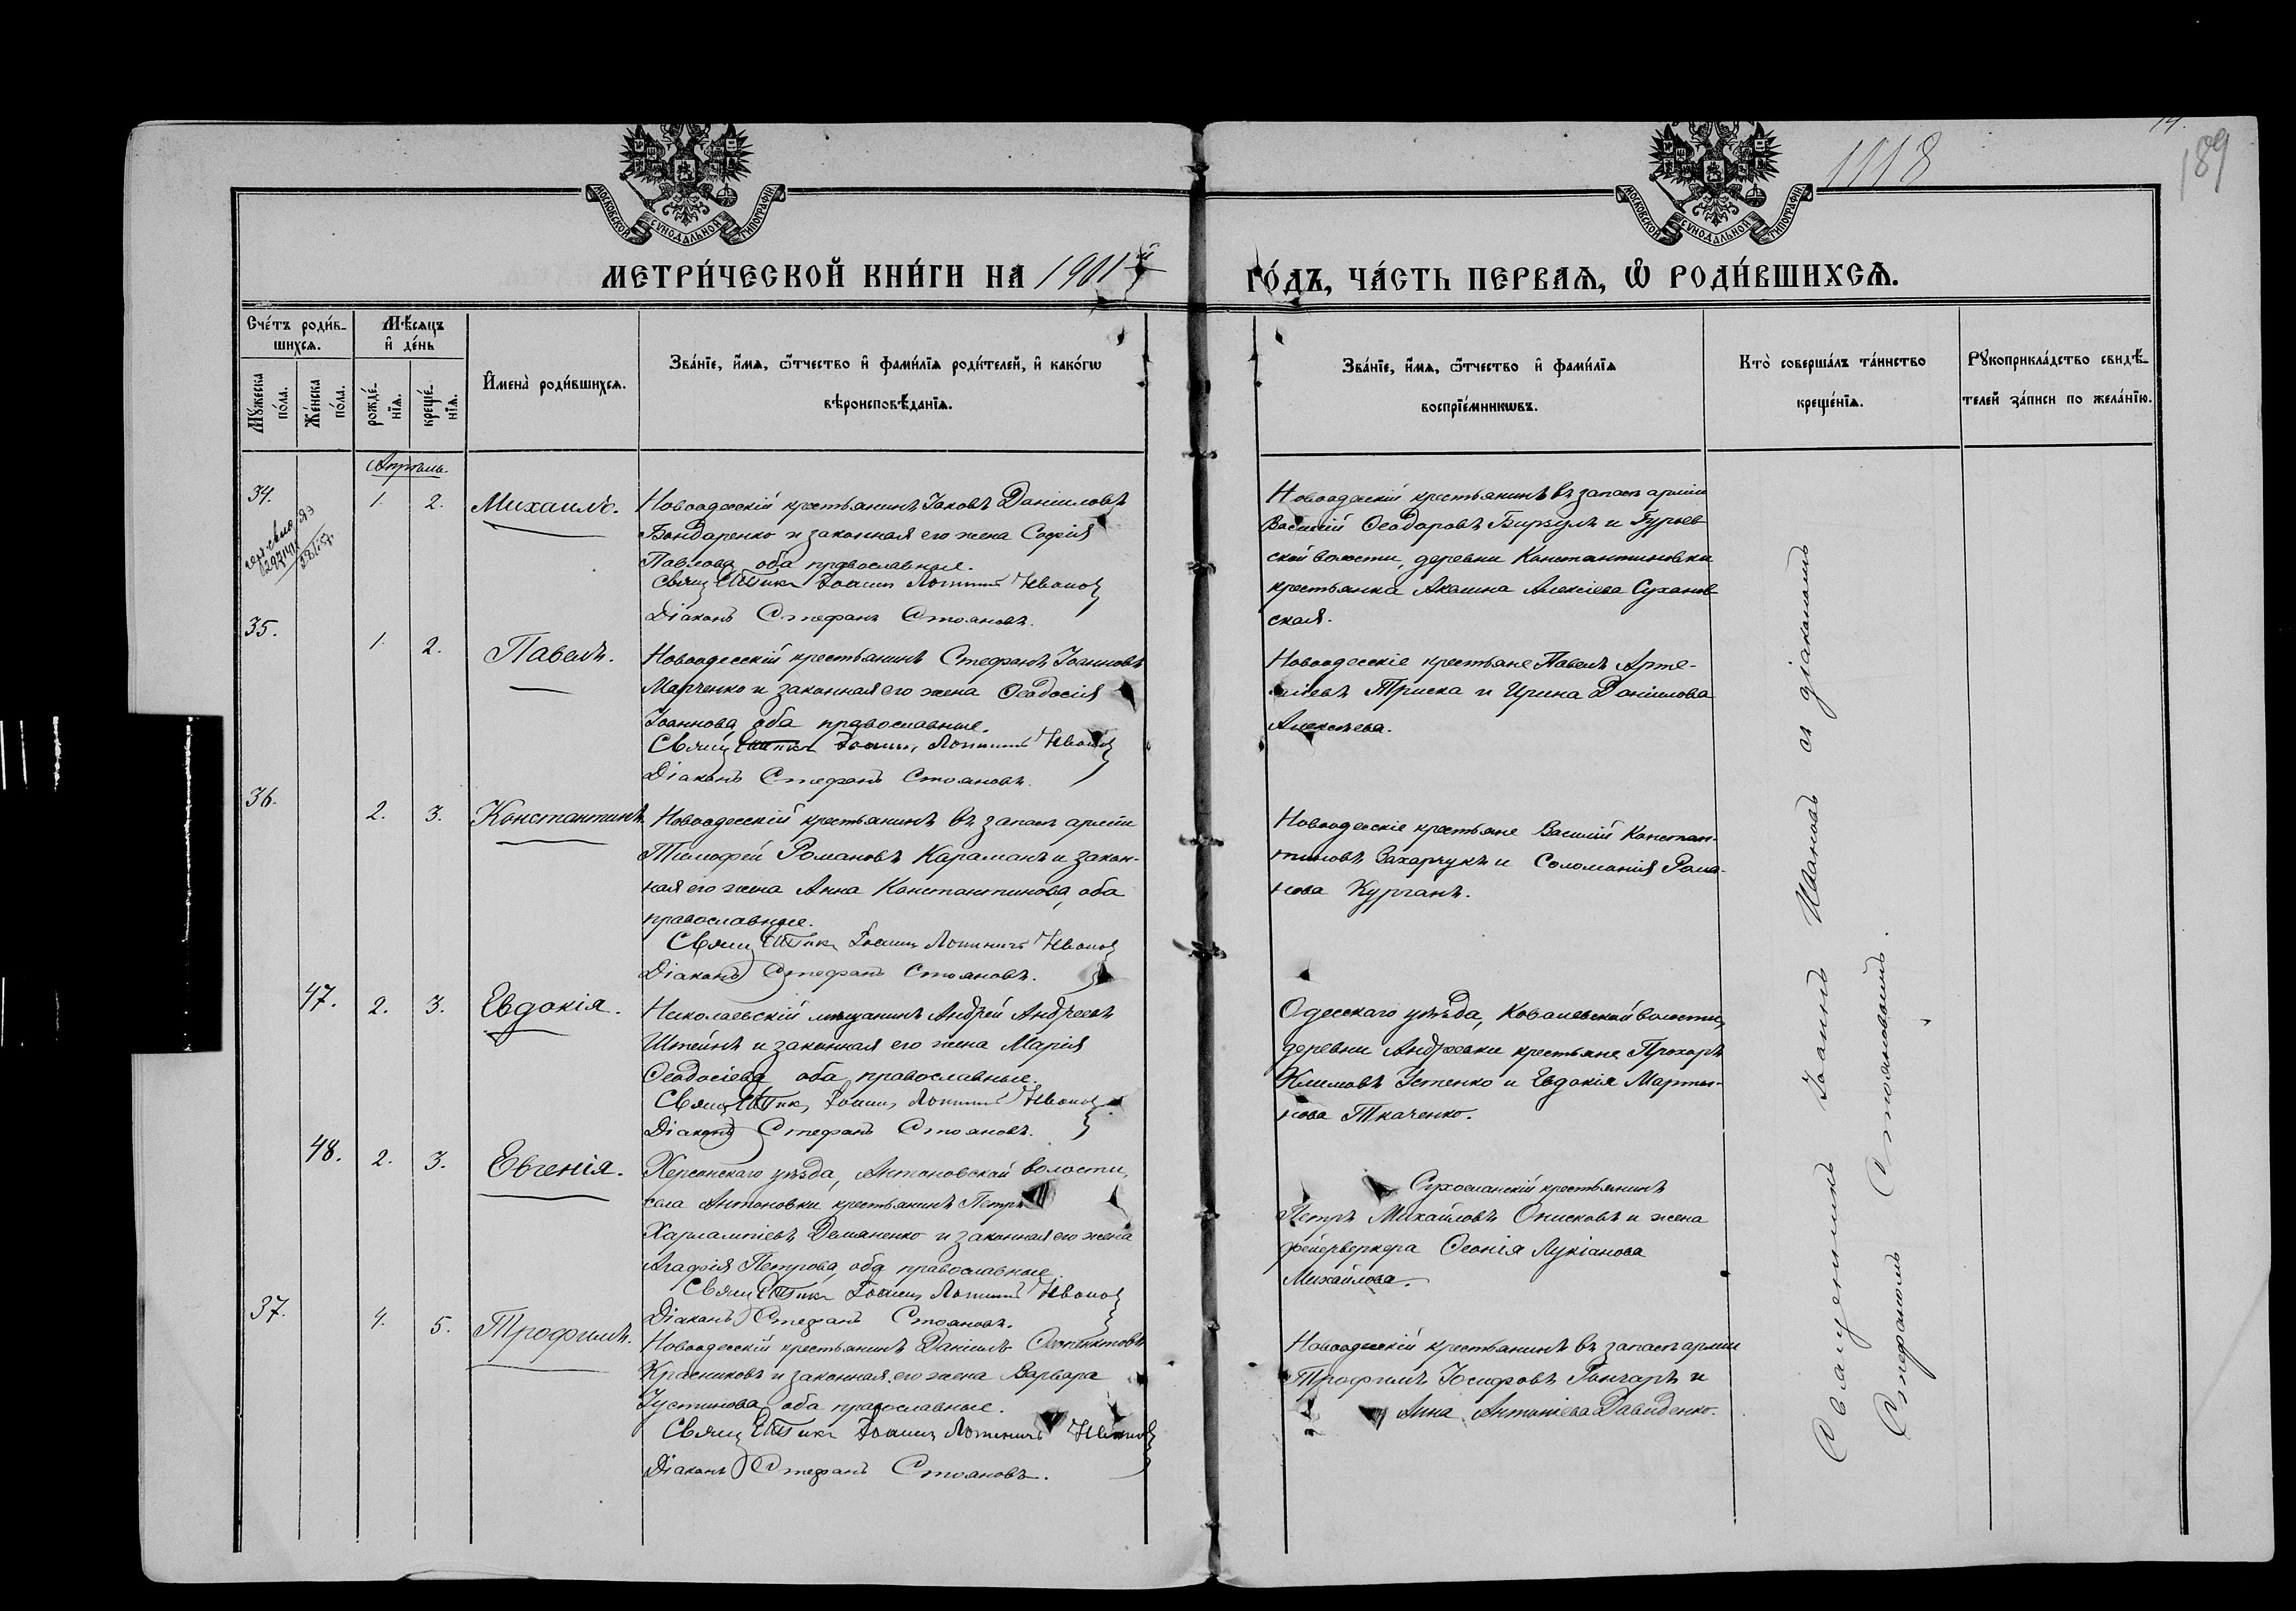 1118
189
14.
МОСКОВСКОЙ СУНОДАЛЬНОЙ ТИПОГРАФІИ
МОСКОВСКОЙ СУНОДАЛЬНОЙ ТИПОГРАФІИ
МЕТРИ́ЧЕСКОЙ КНИ́ГИ НА 1901й
ГО́ДЪ, ЧА́СТЬ ПЕРВАѦ, Ѡ РОДИ́ВШИХСѦ.
Сче́тъ роди́в-
шихсѧ.
Мꙋжеска
по́ла.
Же́нска
по́ла.
Мѣ́сѧцъ
и҆ де́нь
рожде́-
нїѧ.
креще́-
нїѧ.
И҆мена̀ роди́вшихсѧ.
Зва́нїе, и҆́мѧ, ѻ҆́тчество и҆ фами́лїѧ роди́телей, и҆ како́гѡ
вѣроисповѣ́данїѧ.
Зва́нїе, и҆́мѧ, ѻ҆́тчество и҆ фами́лїѧ
воспрїе́мникѡвъ.
Кто̀ соверша́лъ та́инство
креще́нїѧ.
Рꙋкоприкла́дство свидѣ́-
телей за́писи по жела́нїю.
Апрѣль.
34. 1. 2. Михаилъ.
Новоодесскій крестьянинъ Іаковъ Даніиловъ
Бондаренко и законная его жена Софія
Павлова, оба православные.
Священникъ Іоаннъ Ивановъ
Діаконъ Стефанъ Стояновъ.
Новоодесскій крестьянинъ въ запасѣ арміи
Василій Ѳеодоровъ Бирзулъ и Гурьев-
ской волости, деревни Константиновки
крестьянка Акилина Алексіева Суханов-
ская.
35. 1. 2. Павелъ.
Новоодесскій крестьянинъ Стефанъ Іоанновъ
Марченко и законная его жена Ѳеодосія
Іоаннова, оба православные.
Священникъ Іоаннъ Ивановъ
Діаконъ Стефанъ Стояновъ.
Новоодесскіе крестьяне Павелъ Арте-
міевъ Триска и Ирина Даніилова
Алексѣева.
36. 2. 3. Константинъ.
Новоодесскій крестьянинъ въ запасѣ арміи
Тимофей Романовъ Караманъ и закон-
ная его жена Анна Константинова, оба
православные.
Священникъ Іоаннъ Ивановъ
Діаконъ Стефанъ Стояновъ.
Новоодесскіе крестьяне Василій Констан-
тиновъ Захарчукъ и Соломонія Рома-
нова Курганъ.
47. 2. 3. Евдокія.
Николаевскій мѣщанинъ Андрей Андреевъ
Штейнъ и законная его жена Марія
Ѳеодосіева, оба православные.
Священникъ Іоаннъ Ивановъ
Діаконъ Стефанъ Стояновъ.
Одесскаго уѣзда, Ковалевской волости,
деревни Андреевки крестьяне Прохоръ
Климовъ Устенко и Евдокія Марты-
нова Ткаченко.
48. 2. 3. Евгенія.
Херсонскаго уѣзда, Антоновской волости,
села Антоновки крестьянинъ Петръ
Харлампіевъ Демяненко и законная его жена
Агафія Петрова, оба православные.
Священникъ Іоаннъ Ивановъ
Діаконъ Стефанъ Стояновъ.
крестьянинъ
Петръ Михайловъ Онисковъ и жена
фейерверкера Ѳеонія Лукіанова
Михайлова.
37. 4. 5. Трофимъ.
Новоодесскій крестьянинъ Даніилъ Ѳеопемптовъ
Красниковъ и законная его жена Варвара
Іустинова, оба православные.
Священникъ Іоаннъ Ивановъ
Діаконъ Стефанъ Стояновъ.
Новоодесскій крестьянинъ въ запасѣ арміи
Трофимъ Іосифовъ Гончаръ и
Анна Антоніева Давиденко.
Священникъ Іоаннъ Ивановъ съ діакономъ
Стефаномъ Стояновымъ.